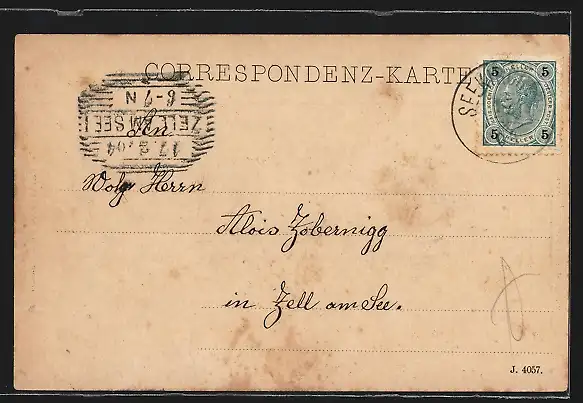 CORRESPONDENZ-KARTE
6-7 N
ZELL AM SEE
17.2.04
5 5
5 5
HELLER
An
Wolg Herrn
Alois Zobernigg
in Zell am See.
J. 4057.